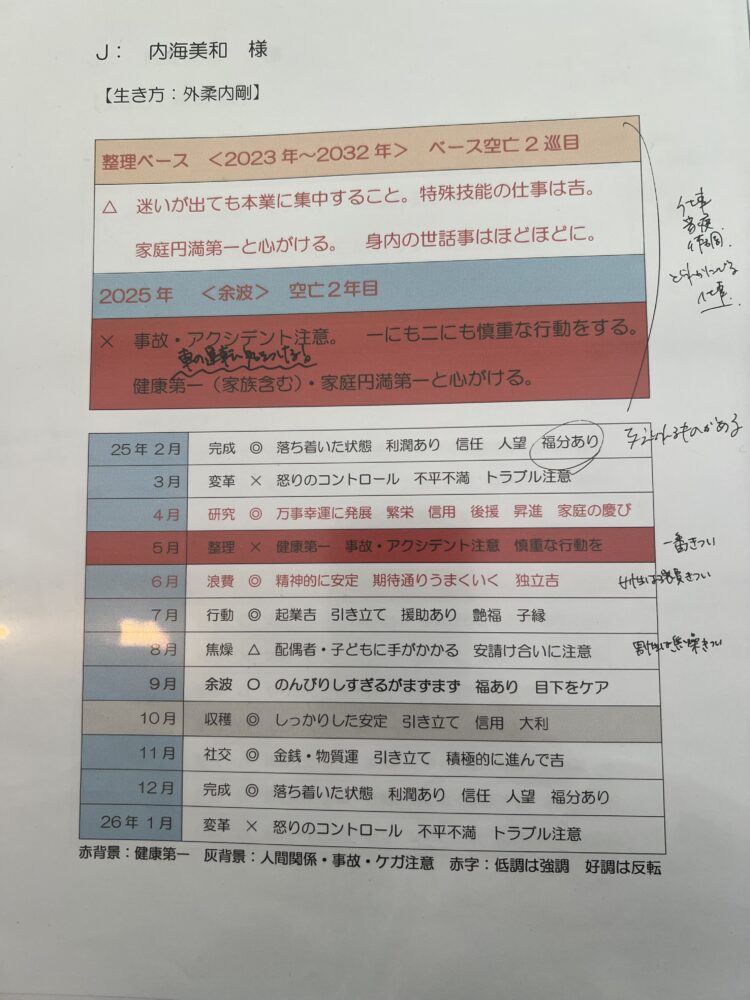 J： 内海美和 様
【生き方：外柔内剛】
整理ベース ＜2023年～2032年＞ ベース空亡2巡目
△ 迷いが出ても本業に集中すること。特殊技能の仕事は吉。
家庭円満第一と心がける。 身内の世話事はほどほどに。
仕事
2025年 ＜余波＞ 空亡2年目
仕事
× 事故・アクシデント注意。 一にも二にも慎重な行動をする。
車の運転に気をつける！
健康第一（家族含む）・家庭円満第一と心がける。
25年2月 完成 ◎ 落ち着いた状態 利潤あり 信任 人望 福分あり
3月 変革 × 怒りのコントロール 不平不満 トラブル注意
4月 研究 ◎ 万事幸運に発展 繁栄 信用 後援 昇進 家庭の慶び
5月 整理 × 健康第一 事故・アクシデント注意 慎重な行動を 一番きつい
6月 浪費 ◎ 精神的に安定 期待通りうまくいく 独立吉 女性は浪費きつい
7月 行動 ◎ 起業吉 引き立て 援助あり 艶福 子縁
8月 焦燥 △ 配偶者・子どもに手がかかる 安請け合いに注意 男性は焦燥きつい
9月 余波 〇 のんびりしすぎるがまずまず 福あり 目下をケア
10月 収穫 ◎ しっかりした安定 引き立て 信用 大利
11月 社交 ◎ 金銭・物質運 引き立て 積極的に進んで吉
12月 完成 ◎ 落ち着いた状態 利潤あり 信任 人望 福分あり
26年1月 変革 × 怒りのコントロール 不平不満 トラブル注意
赤背景：健康第一 灰背景：人間関係・事故・ケガ注意 赤字：低調は強調 好調は反転